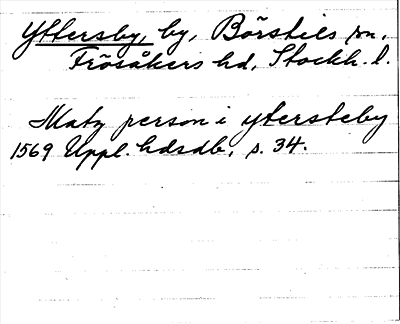 Yttersby, by, Börstils sn,
Frösåkers hd, Stockh. l.
Matz person i ytersteby
1569 Uppl. hdsdb, s. 34.